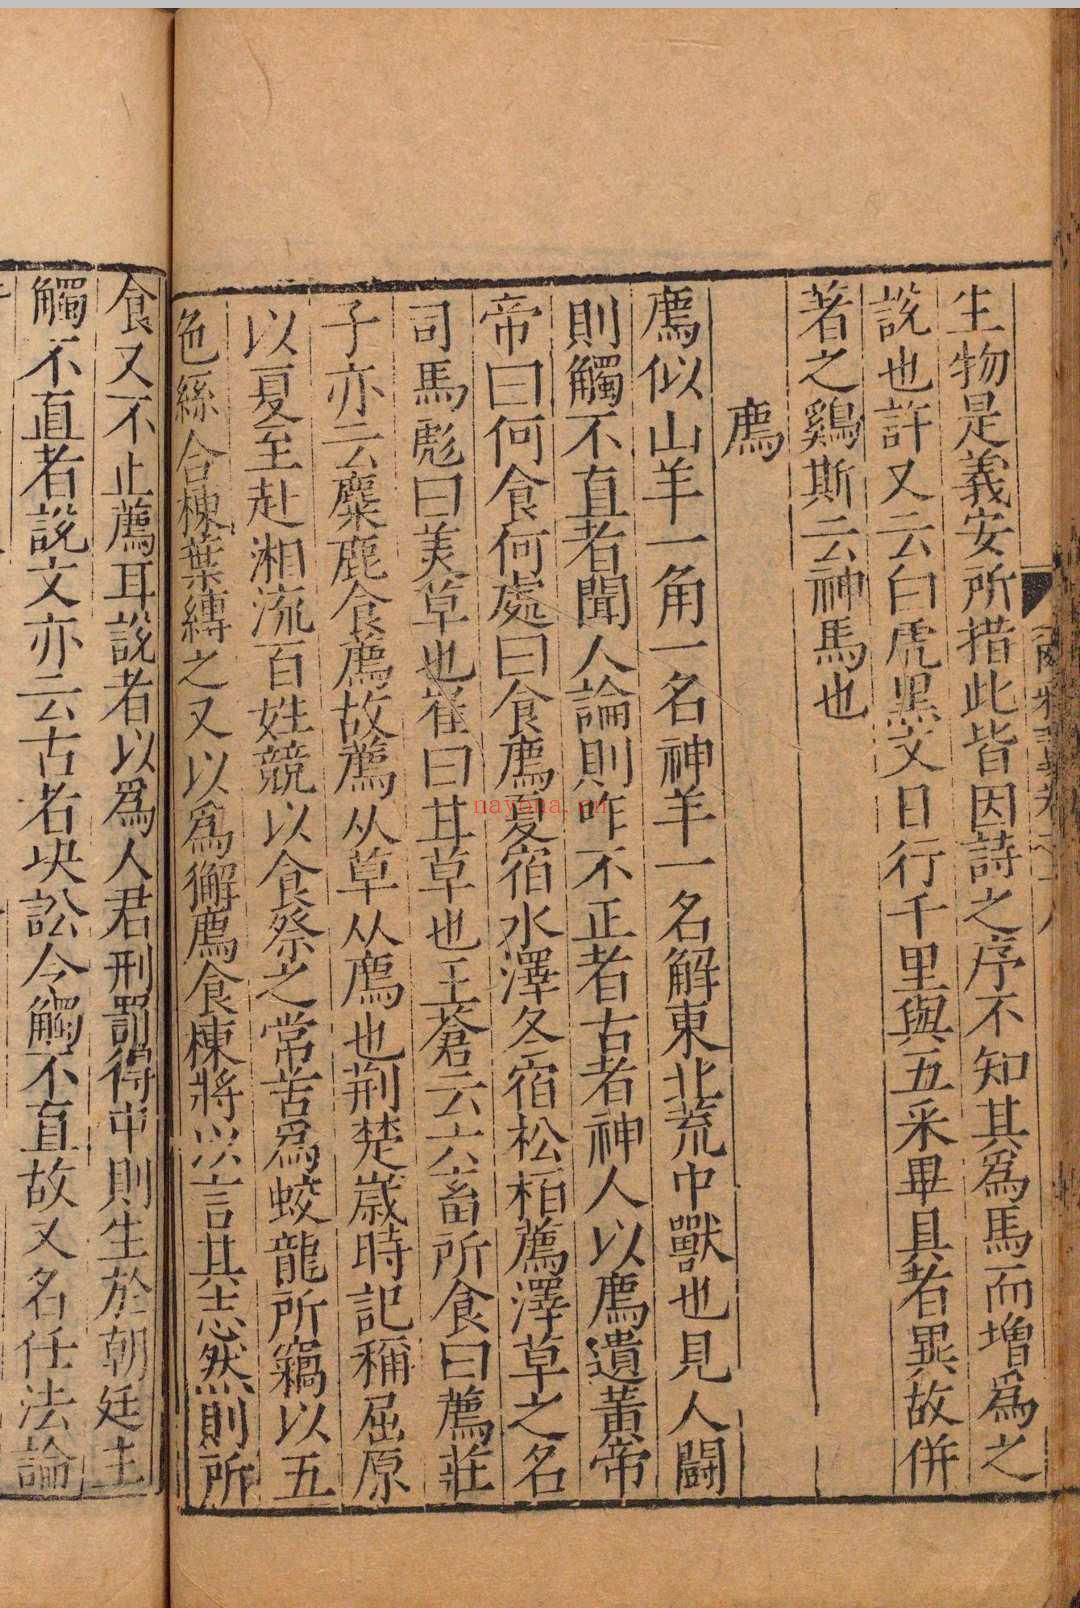 生物是義安所措此皆因詩之序不知其為馬而增為之
說也許又云白虎黑文日行千里與五采畢具者異故併
著之鷄斯云神馬也
廌
廌似山羊一角一名神羊一名解東北荒中獸也見人鬪
則觸不直者聞人論則咋不正者古者神人以廌遺黃帝
帝曰何食何處曰食廌夏宿水澤冬宿松栢薦澤草之名
司馬彪曰美草也崔曰甘草也王蒼云六畜所食曰薦莊
子亦云麋鹿食薦故薦从草从廌也荆楚歲時記稱屈原
以夏至赴湘流百姓競以食祭之常苦為蛟龍所竊以五
色絲合楝葉縳之又以為獬廌食楝將以言其志然則所
食又不止薦耳說者以為人君刑罰得中則生於朝廷主
觸不直者說文亦云古者决訟令觸不直故又名任法論
nayona.cn